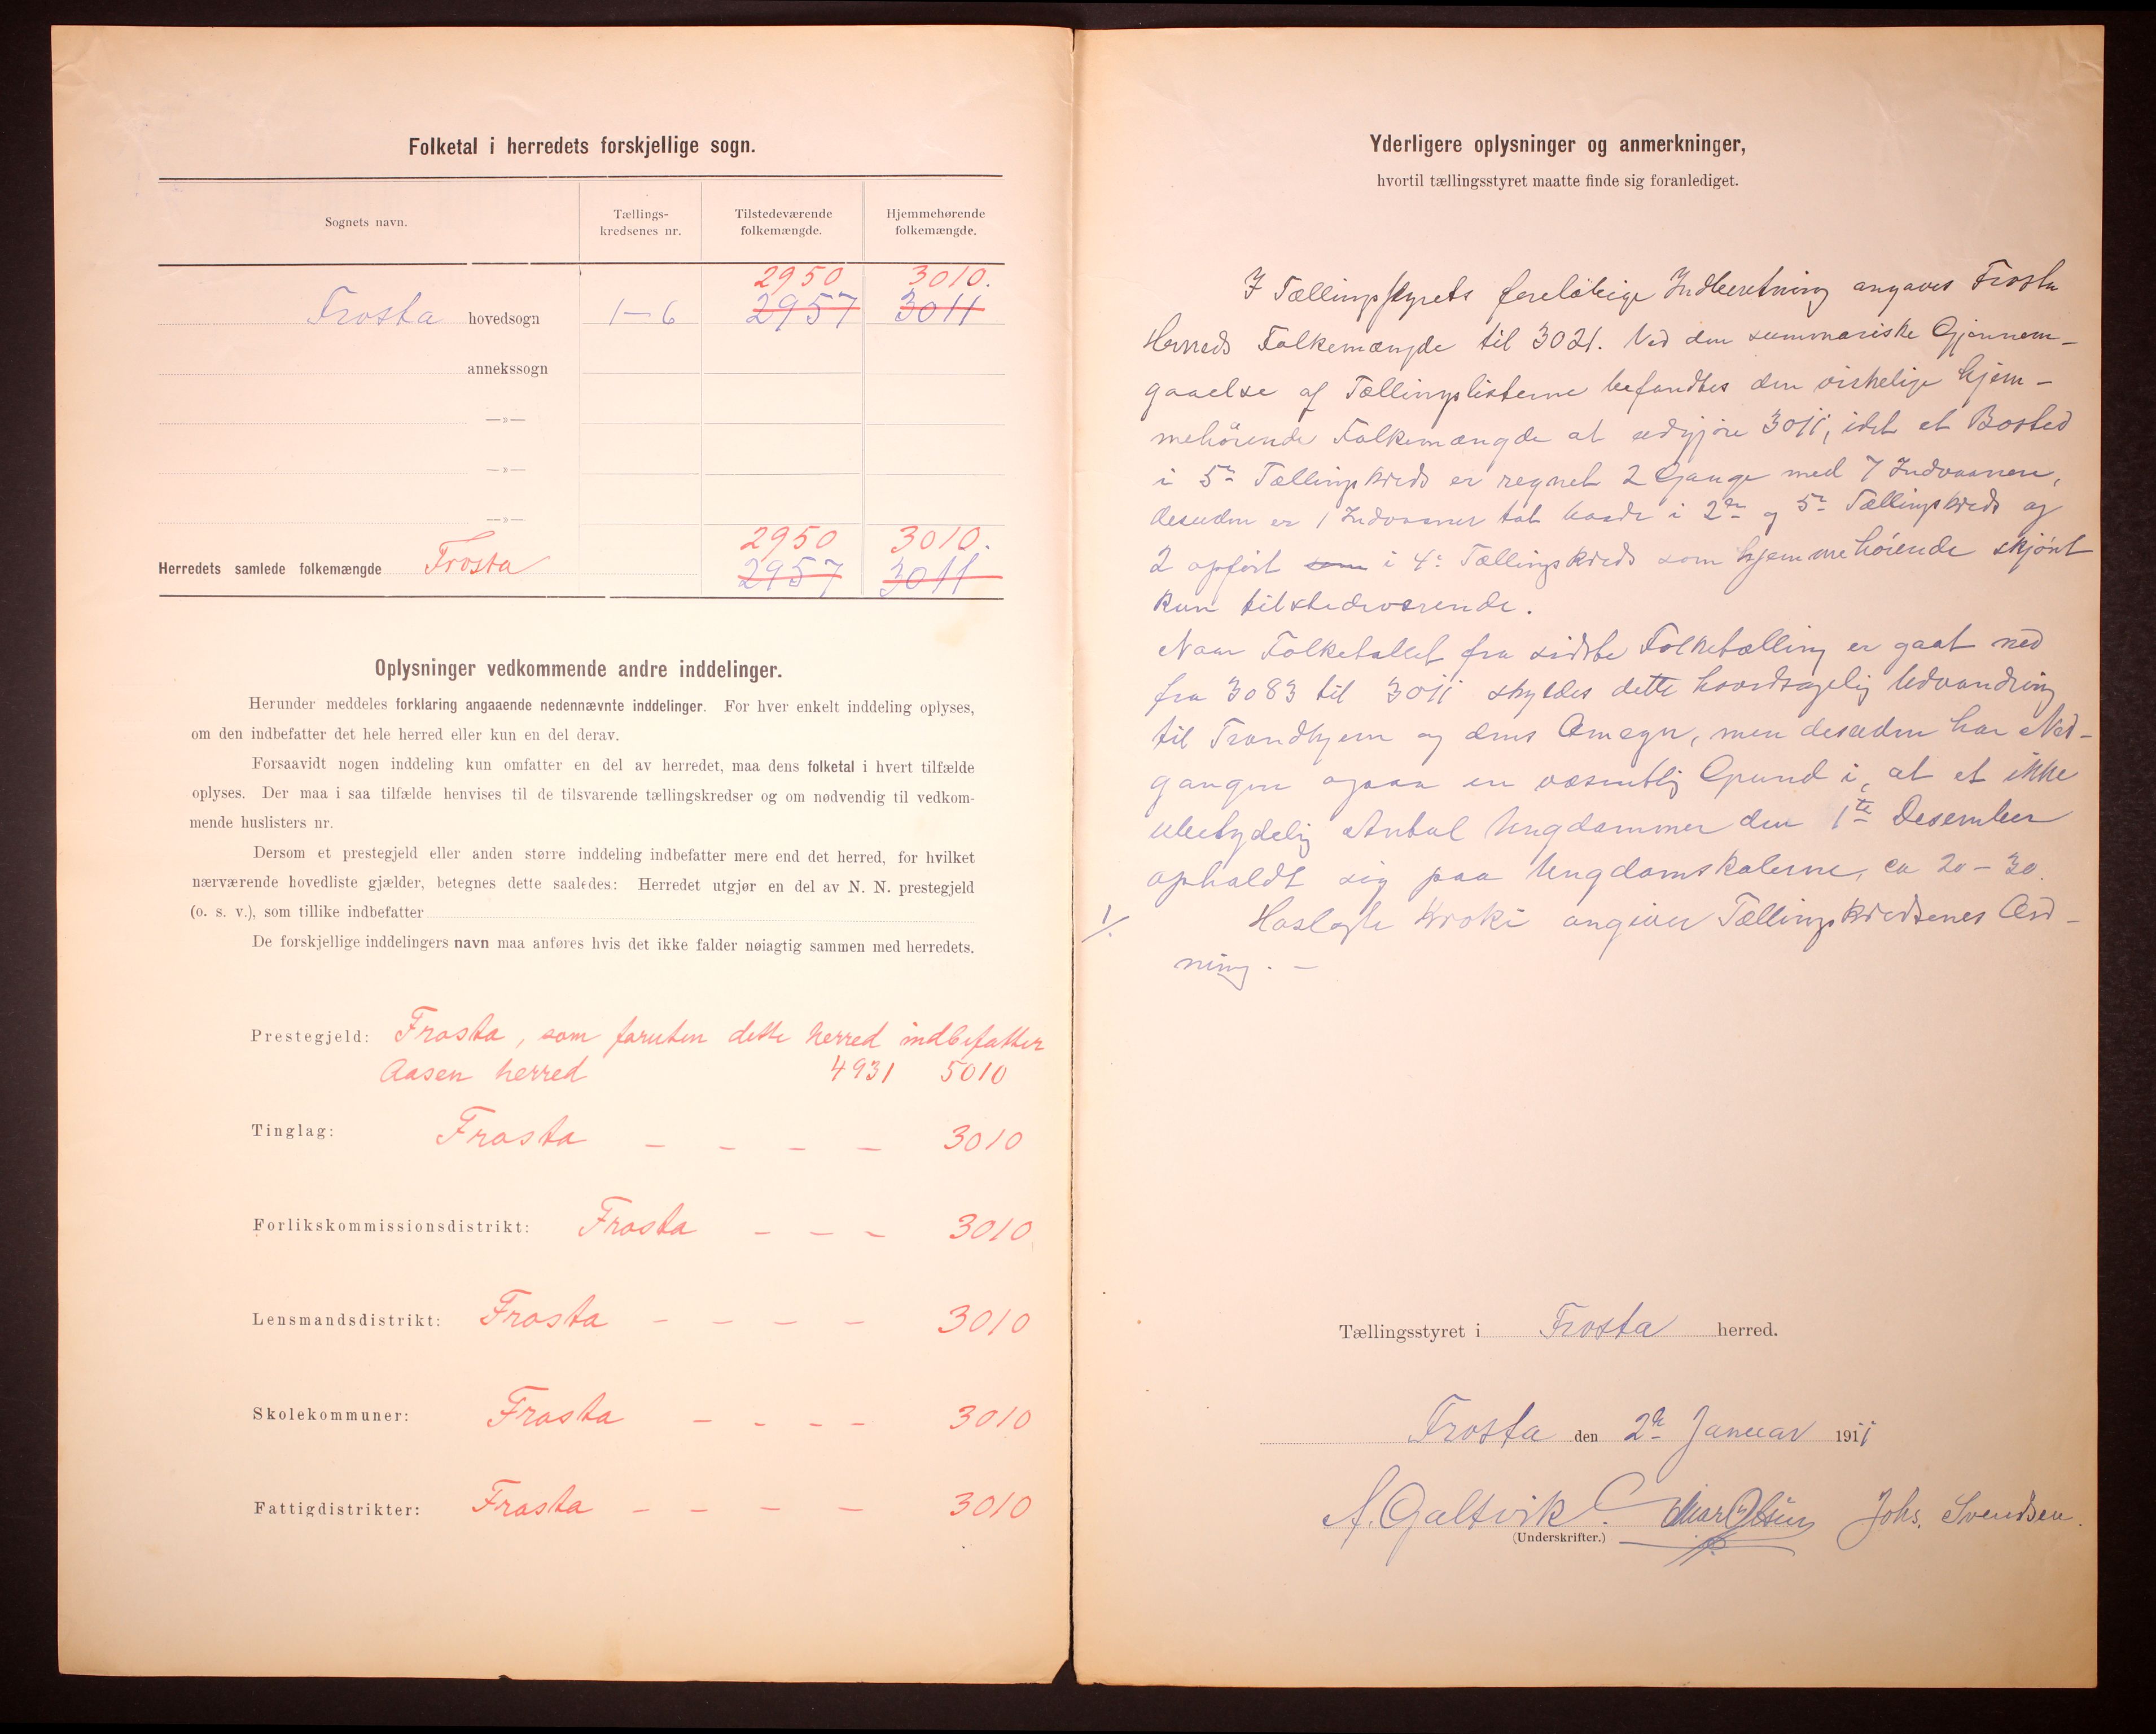 Folketal i herredets forskjellige sogn.
Sognets navn.
Tællings-
kredsenes nr.
Tilstedeværende
folkemængde.
Hjemmehørende
folkemængde.
2950 3010.
Frosta hovedsogn 1-6 2957 3011
annekssogn
—»—
—»—
—»—
2950 3010.
Herredets samlede folkemængde Frosta 2957 3011
Oplysninger vedkommende andre inddelinger.
Herunder meddeles forklaring angaaende nedennævnte inddelinger. For hver enkelt inddeling oplyses,
om den indbefatter det hele herred eller kun en del derav.
Forsaavidt nogen inddeling kun omfatter en del av herredet, maa dens folketal i hvert tilfælde
oplyses. Der maa i saa tilfælde henvises til de tilsvarende tællingskredser og om nødvendig til vedkom-
mende huslisters nr.
Dersom et prestegjeld eller anden større inddeling indbefatter mere end det herred, for hvilket
nærværende hovedliste gjælder, betegnes dette saaledes: Herredet utgjør en del av N. N. prestegjeld
(o. s. v.), som tillike indbefatter
De forskjellige inddelingers navn maa anføres hvis det ikke falder nøiagtig sammen med herredets.
Prestegjeld: Frosta, som foruten dette herred indbefatter
Aasen herred 4931 5010
Tinglag: Frosta - - - - 3010
Forlikskommissionsdistrikt: Frosta - - - 3010
Lensmandsdistrikt: Frosta - - - - 3010
Skolekommuner: Frosta - - - - 3010
Fattigdistrikter: Frosta - - - - 3010
Yderligere oplysninger og anmerkninger,
hvortil tællingsstyret maatte finde sig foranlediget.
I Tællingsstyrets foreløbige Indberetning angaves Frosta
Herreds Folkemængde til 3021. Ved den summariske Gjennem-
gaaelse af Tællingslisterne befandtes den virkelige hjem-
mehörende Folkemængde at udgjøre 3011, idet et Bosted
i 5te Tællingskreds er regnet 2 Gange med 7 Indvaanere,
desuden er 1 Indvaaner talt baade i 2den og 5te Tællingskreds og
2 opført som i 4e Tællingskreds som hjemmehørende skjønt
kun tilstedeværende.
Naar Folketallet fra sidste Folketælling er gaat ned
fra 3083 til 3011 skyldes dette hovedsagelig Udvandring
til Trondhjem og dens Omegn, men desuden har Ned-
gangen ogsaa en væsentlig Grund i, at et ikke
ubetydelig Antal Ungdommer den 1te Desember
opholdt sig paa Ungdomskolerne, ca 20-30.
1/. Hoslagte Kroki angiver Tællingskredsenes Ord-
ning. -
Tællingsstyret i Frosta herred.
Frosta den 2de Januar 1911
A. Galtvik. Johs. Svendsen.
(Underskrifter.)